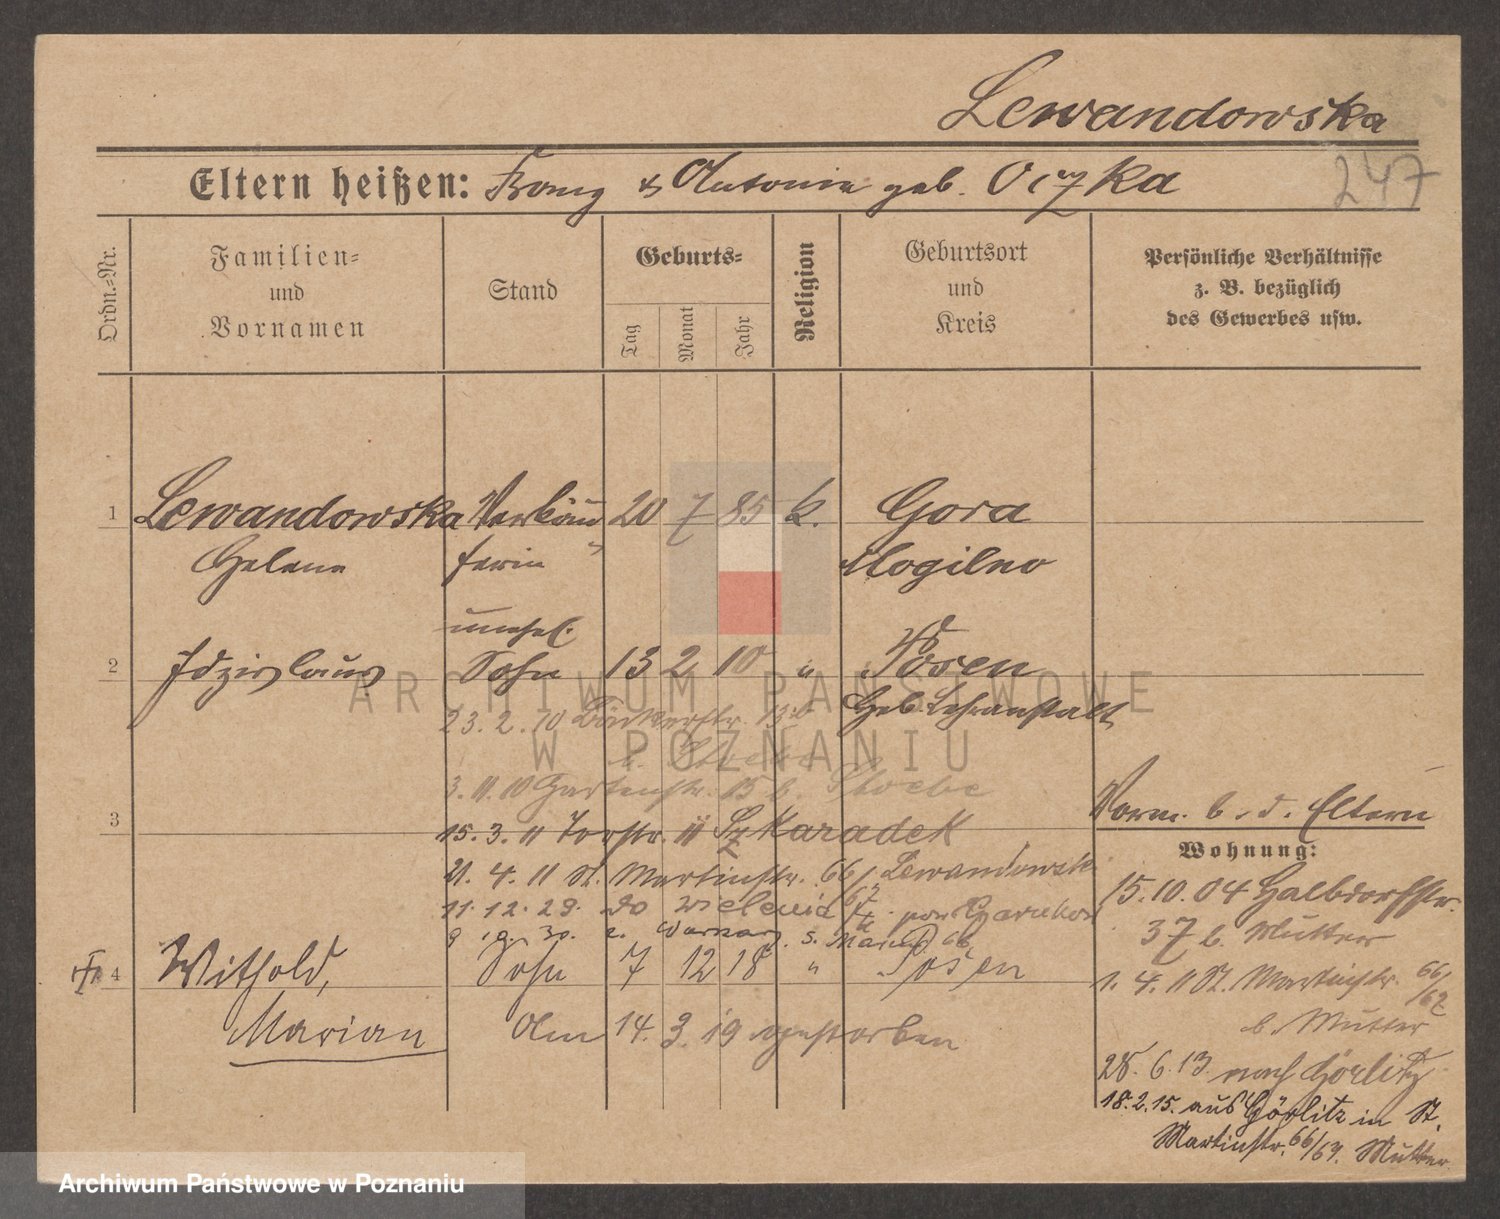 Lewandowska
247
Eltern heißen: Franz & Antonie geb.
Ordn.-Nr.
Familien-
und
Vornamen
Stand
Geburts-
Tag
Monat
Jahr
Religion
Geburtsort
und
Kreis
Persönliche Verhältnisse
z. B. bezüglich
des Gewerbes usw.
1 Lewandowska Verkäu- 20 7 85 k. Gora
Helene ferin Mogilno
unehel.
2 Idzislaus Sohn 13 2 10 " Posen
Geb. Lehranstalt
23. 2. 10 Bäckerstr.
3. 11. 10 Gartenstr. 15 b. Stoebe
3
15. 3. 11 Torstr. Szkaradek
21. 4. 11 St. Martinstr. 66/67 Lewandowski
11. 12. 29. do
9 30. S. Marcin 66
4 Withold, Sohn 7 12 18 " Posen
Marian
Am 14. 3. 19 verstorben
Vorm. b. d. Eltern
Wohnung:
15. 10. 04 Halbdorfstr.
37 b. Mutter
1. 4. 11 St. Martinstr. 66/67
b. Mutter
28. 6. 13. nach Görlitz
18. 2. 15. aus Görlitz in St.
Martinstr. 66/67. Mutter
ARCHIWUM PAŃSTWOWE
W POZNANIU
Archiwum Państwowe w Poznaniu